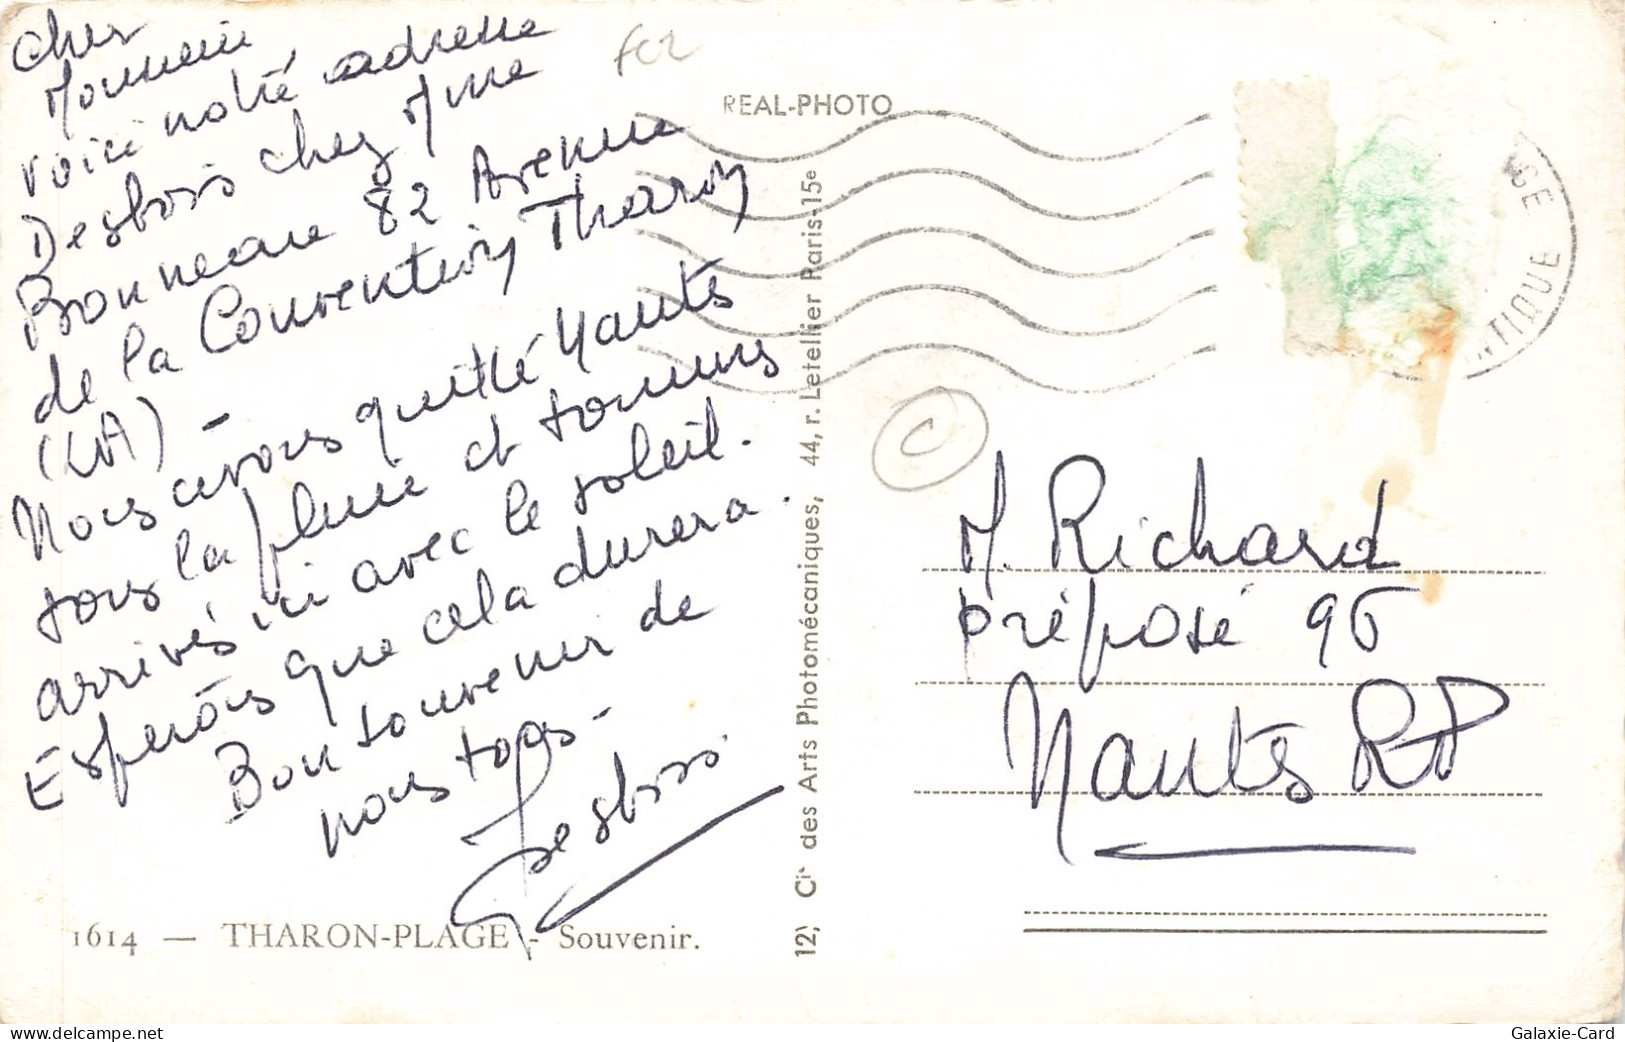 Cher
Monsieur
voici notre adresse
Desbois chez Mme
Bonneau 82 Avenue
de la Convention Tharon
(LA) -
Nous avons quitté Nantes
sous la pluie et sommes
arrivés ici avec le soleil.
Espérons que cela durera.
Bon souvenir de
nous tous -
Desbois
1614 — THARON-PLAGE - Souvenir.
REAL-PHOTO
12, Cie des Arts Photomécaniques, 44, r. Letellier Paris-15e
©
M. Richard
préposé 96
Nantes RP
www.delcampe.net
Galaxie-Card